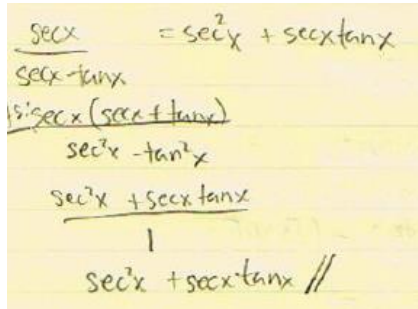 secx = sec²x + secxtanx
secx-tanx
secx(secx+tanx)
sec²x - tan²x
sec²x + secxtanx
1
sec²x + secxtanx //